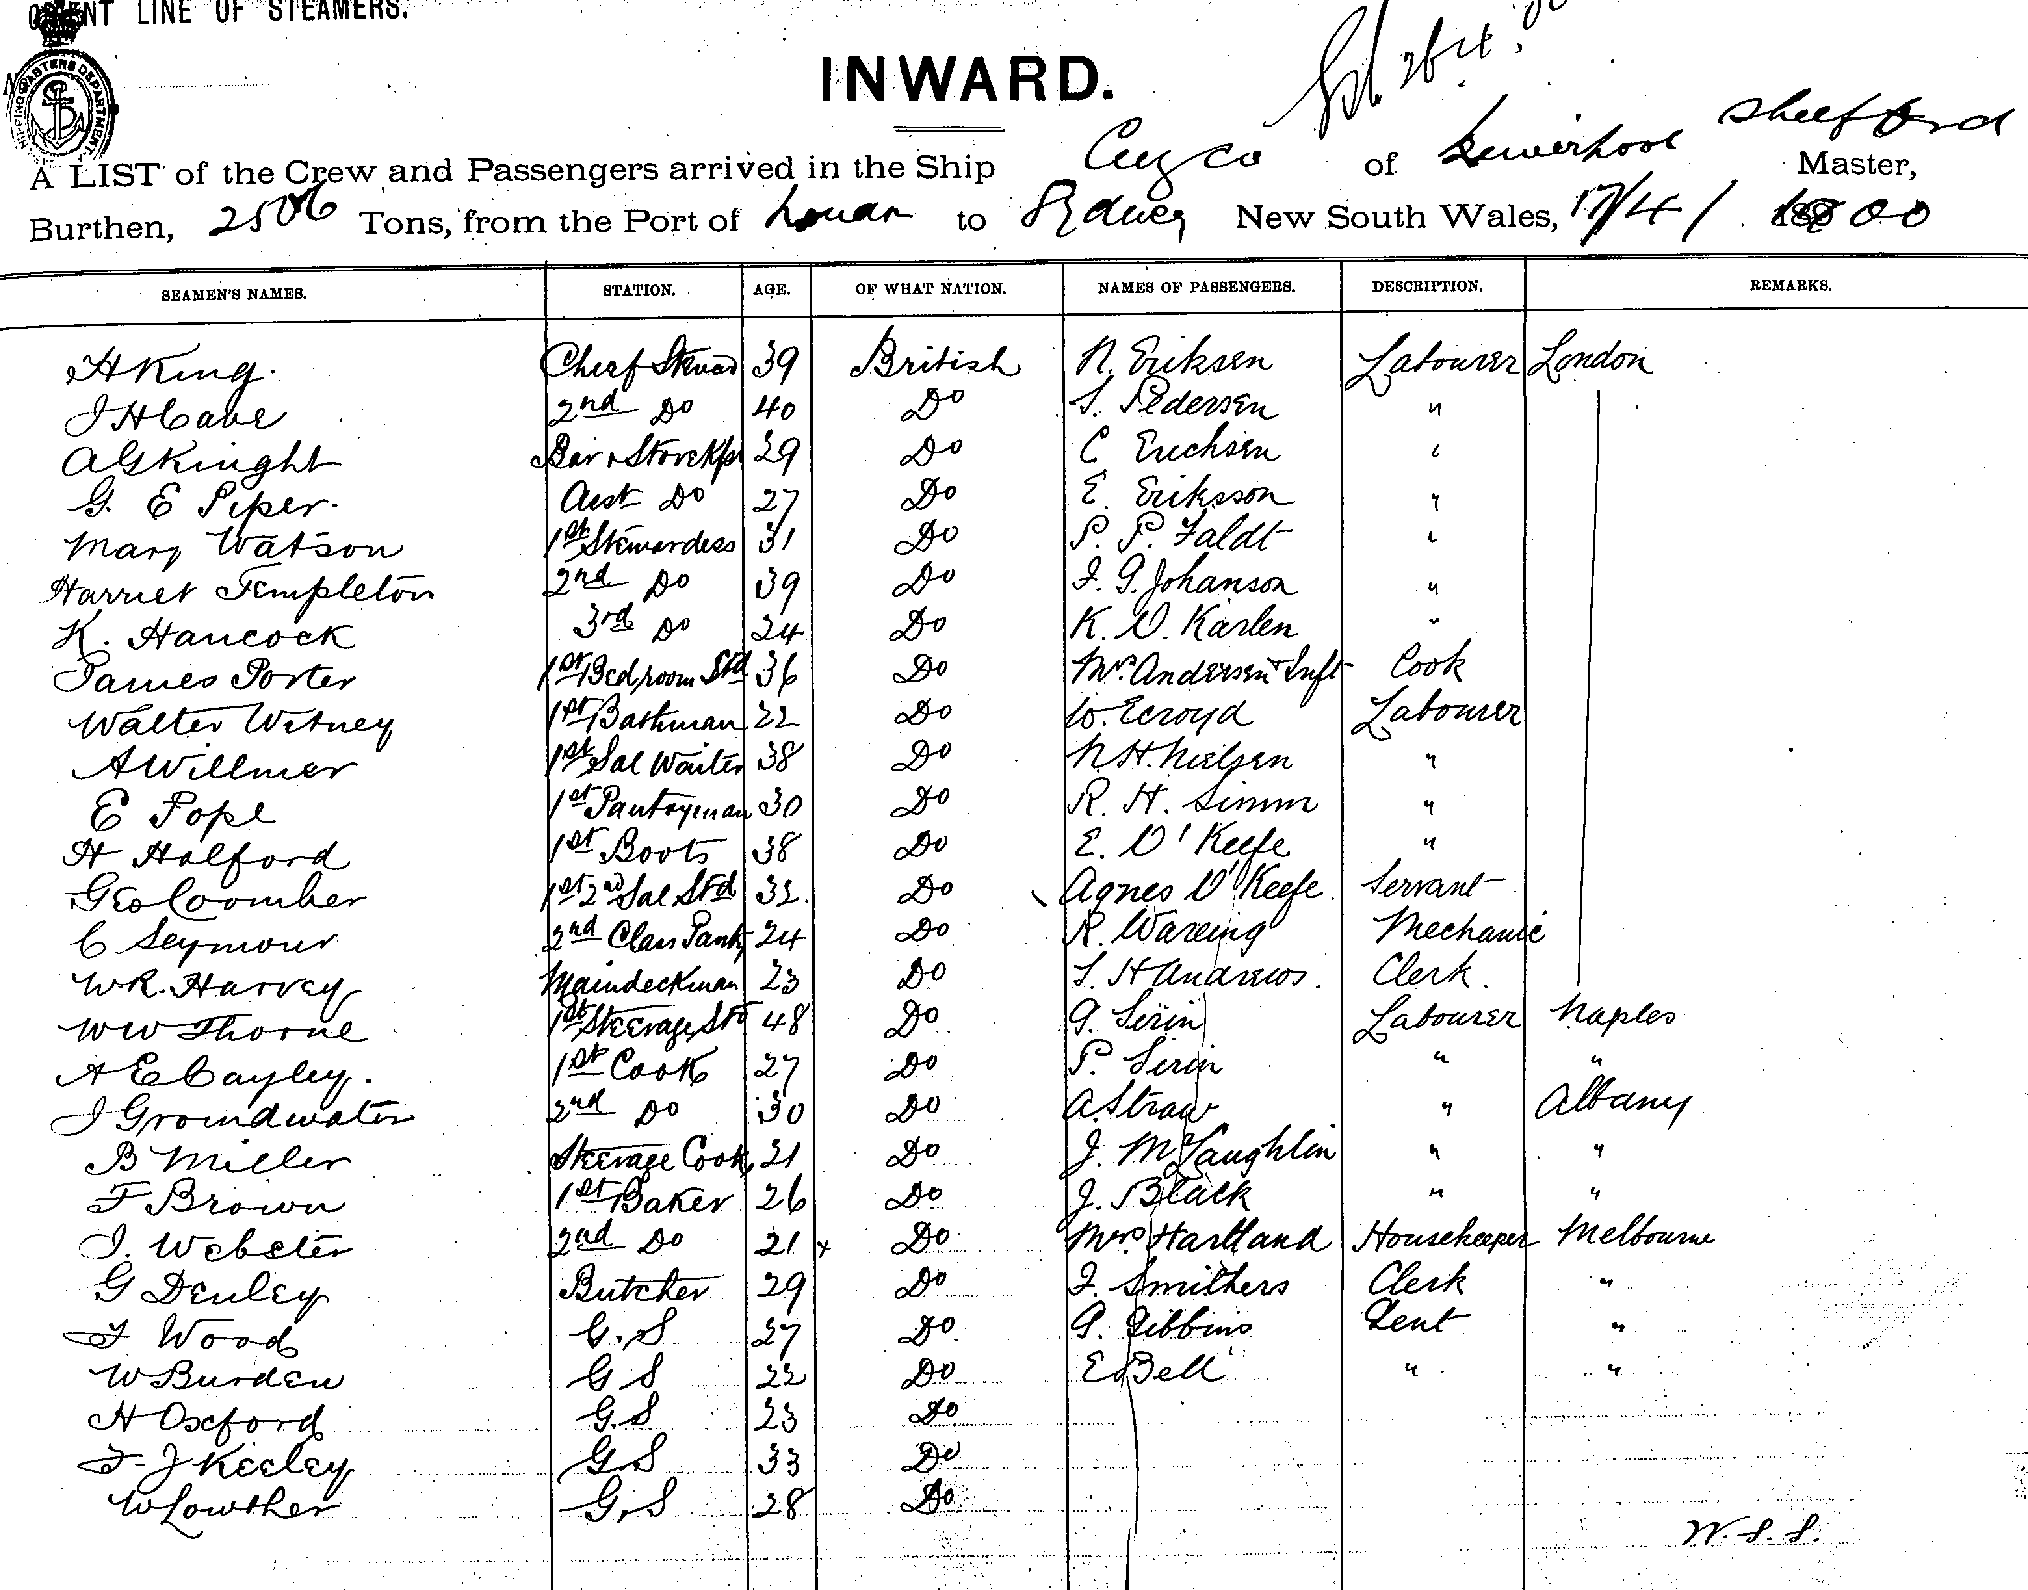 ORIENT LINE OF STEAMERS.
INWARD.
SHIPPING MASTERS DEPARTMENT
Shefford
A LIST of the Crew and Passengers arrived in the Ship Cuzco of Master,
Burthen, 2506 Tons, from the Port of London to Sydney New South Wales, 17/4/ 1900
SEAMEN'S NAMES. STATION. AGE. OF WHAT NATION. NAMES OF PASSENGERS. DESCRIPTION. REMARKS.
H King. Chief Steward 39 British N. Eriksen Labourer London
J H Cave 2nd Do 40 Do S. Pedersen "
A G Kinght Bar & Storekpr 29 Do C Erichsen "
G. E Piper. Asst Do 27 Do E. Eriksson "
Mary Watson 1st Stewardess 31 Do P. P. Faldt "
Harriet Templeton 2nd Do 39 Do J. G. Johanson "
K. Hancock 3rd Do 24 Do K. O. Karlen "
James Porter 1st Bedroom Std 36 Do Mrs. Andersen & Inft Cook
Walter Witney 1st Bathman 22 Do W. Ecroyd Labourer
A Willmer 1st Sal Waiter 38 Do N H. Nielsen "
E Pope 1st Pantryman 30 Do R. H. Simm "
H Halford 1st Boots 38 Do E. O'Keefe "
Geo Coomber 1st 2nd Sal Std 32. Do Agnes O'Keefe Servant
C Seymour 2nd Class Pantry 24 Do R. Wareing Mechanic
W R. Harvey Maindeckman 23 Do S. H Andrews. Clerk.
W W Thorne 1st Steerage Std 48 Do G. Serin Labourer Naples
A E Cayley. 1st Cook 27 Do P. Serin " "
J Groundwater 2nd Do 30 Do A. Straw " Albany
B Miller Steerage Cook 21 Do J. McLaughlin " "
F Brown 1st Baker 26 Do J. Black " "
J. Webster 2nd Do 21 x Do Mrs. Hartland Housekeeper Melbourne
G Denley Butcher 29 Do J. Smithers Clerk "
F Wood G. S 27 Do G. Gibbins Gent "
W Burden G S 22 Do E Bell " "
H Oxford G. S 23 Do
F. J Keeley G S 33 Do
W Lowther G. S 28 Do
W. S. S.